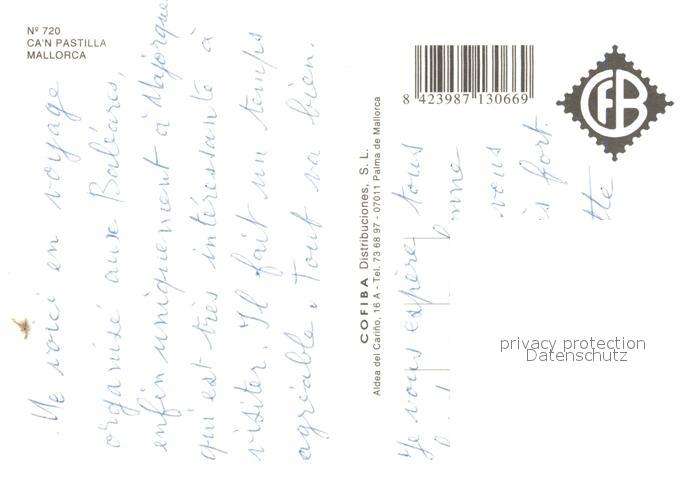 Nº 720
CA'N PASTILLA
MALLORCA
Me voici en voyage
organisé aux Baléares,
enfin uniquement à Majorque
qui est très intéressante à
visiter. Il fait un temps
agréable. Tout va bien.
COFIBA Distribuciones, S. L.
Aldea del Cariño, 16 A - Tel. 73 68 97 - 07011 Palma de Mallorca
8 423987 130669
CFB
Je vous espère tous
vous
fort.
privacy protection
Datenschutz